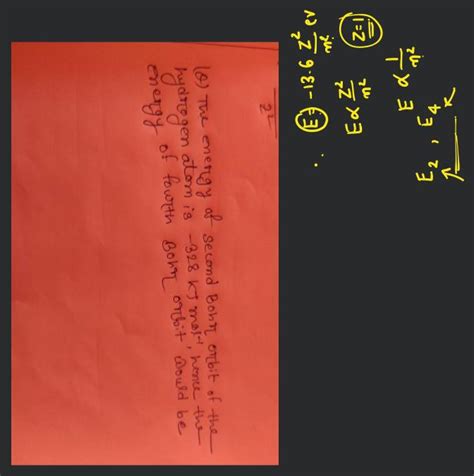 (Q) The energy of second Bohr orbit of the
hydrogen atom is -328 KJ mol⁻¹, hence the
energy of fourth Bohr orbit, would be
E = -13.6 Z²/n² ev
E ∝ Z²/n²
Z=1
E ∝ 1/n²
E₂, E₄